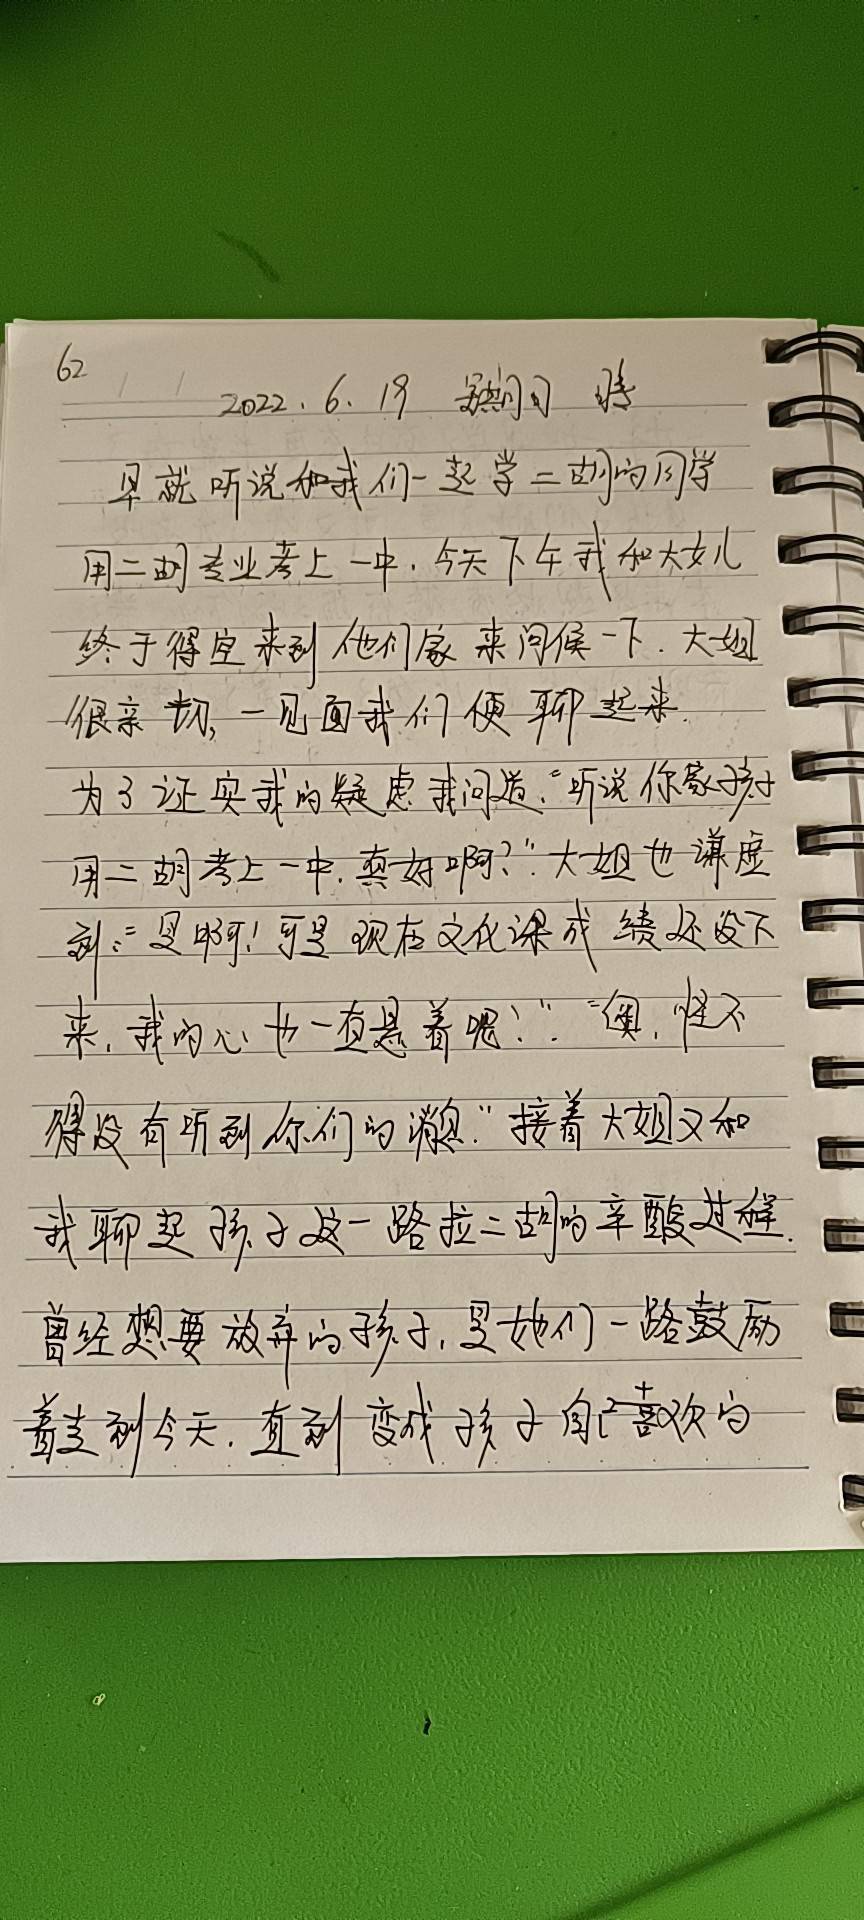 62
2022.6.19 日 晴
早就听说和我们一起学二胡的同学
用二胡专业考上一中.今天下午我和大女儿
终于得空来到他们家来问候一下.大姐
很亲切,一见面我们便聊起来.
为了证实我的疑虑我问道:“听说你家孩子
用二胡考上一中.真好啊?”大姐也谦虚
到:“是啊!可是现在文化课成绩还没下
来.我的心也一直悬着呢!”“奥,怪不
得没有听到你们的消息.”接着大姐又和
我聊起孩子这一路拉二胡的辛酸过程.
曾经想要放弃的孩子,是她们一路鼓励
着走到今天.直到变成孩子自己喜欢的